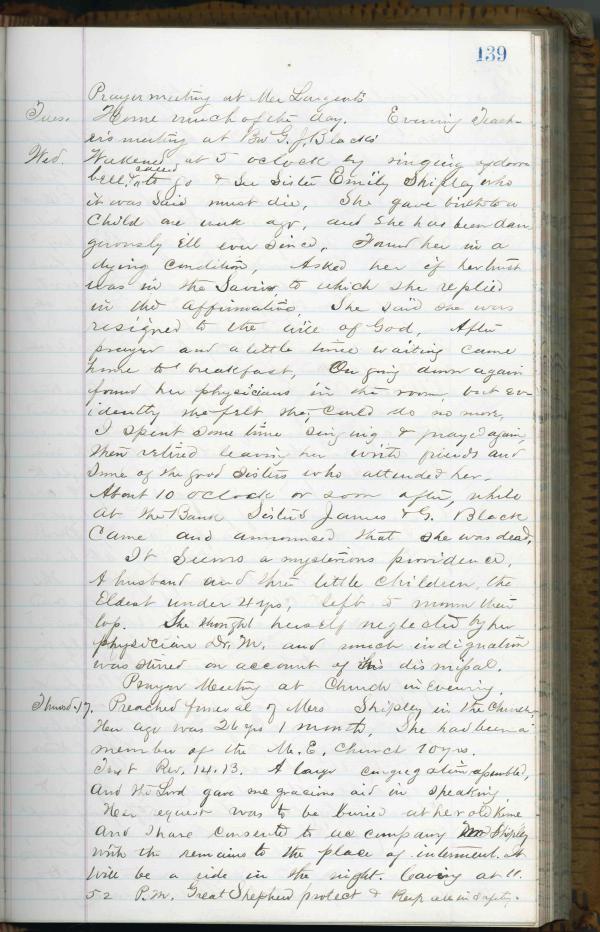 139
Prayer meeting at Mrs Sargents
Tues. Home much of the day. Evening Teach-
ers meeting at Bro G. J. Blacks
Wed. Wakened at 5 oclock by ringing of door
bell, & called to go & see Sister Emily Shipley who
it was said must die. She gave birth to a
child one week ago, and she has been dan
gerously ill ever since. Found her in a
dying condition, Asked her if her trust
was in the Savior, to which she replied
in the affirmative. She said she was
resigned to the will of God. After
prayer and a little time waiting came
home to breakfast. On going down again
found her physicians in the room, but ev-
idently she felt they could do no more,
I spent some time singing & prayed again,
then retired leaving her with friends and
some of the good sisters who attended her.
About 10 oclock or soon after, while
at the Bank Sisters James & G. Black
came and announced that she was dead.
It seems a mysterious providence,
A husband and three little children, the
Eldest under 4 yrs, left to mourn their
loss. She thought herself neglected by her
physician Dr. M. and much indignation
was stired on account of his dismissal.
Prayer Meeting at Church in Evening.
Thursd. 17. Preached funeral of Mrs Shipley in the Church.
Her age was 26 yrs 1 month, She had been a
member of the M. E. Church 10 yrs.
Text Rev. 14.13. A large congregation assembled,
and the Lord gave me gracious aid in speaking
Her request was to be buried at her old home
and I have consented to accompany Shipley
with the remains to the place of interment. It
will be a ride in the night. Leaving at 11.
52 P.M. Great Shepherd protect & keep all in safety.